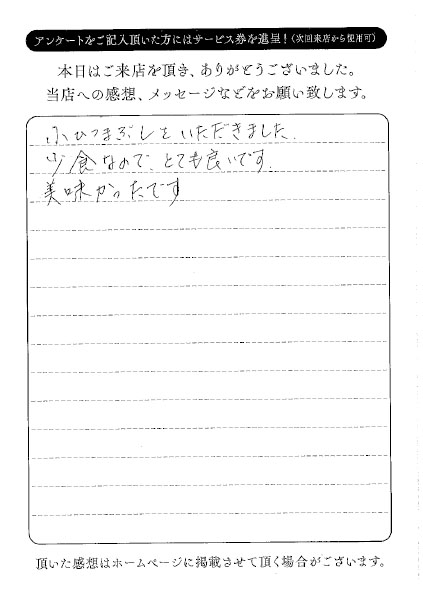 アンケートをご記入頂いた方にはサービス券を進呈！（次回来店から使用可）
本日はご来店を頂き、ありがとうございました。
当店への感想、メッセージなどをお願い致します。
小ひつまぶしをいただきました.
少食なので、とても良いです.
美味かったです
頂いた感想はホームページに掲載させて頂く場合がございます。